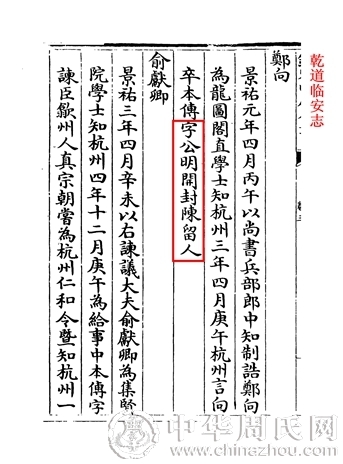 乾道临安志
鄭向
景祐元年四月丙午以尚書兵部郎中知制誥鄭向
為龍圖閣直學士知杭州三年四月庚午杭州言向
卒本傳字公明開封陳留人
俞獻卿
景祐三年四月辛未以右諫議大夫俞獻卿為集賢
院學士知杭州四年十二月庚午為給事中本傳字
諫臣歙州人真宗朝嘗為杭州仁和令暨知杭州一
中华周氏网
www.chinazhou.com